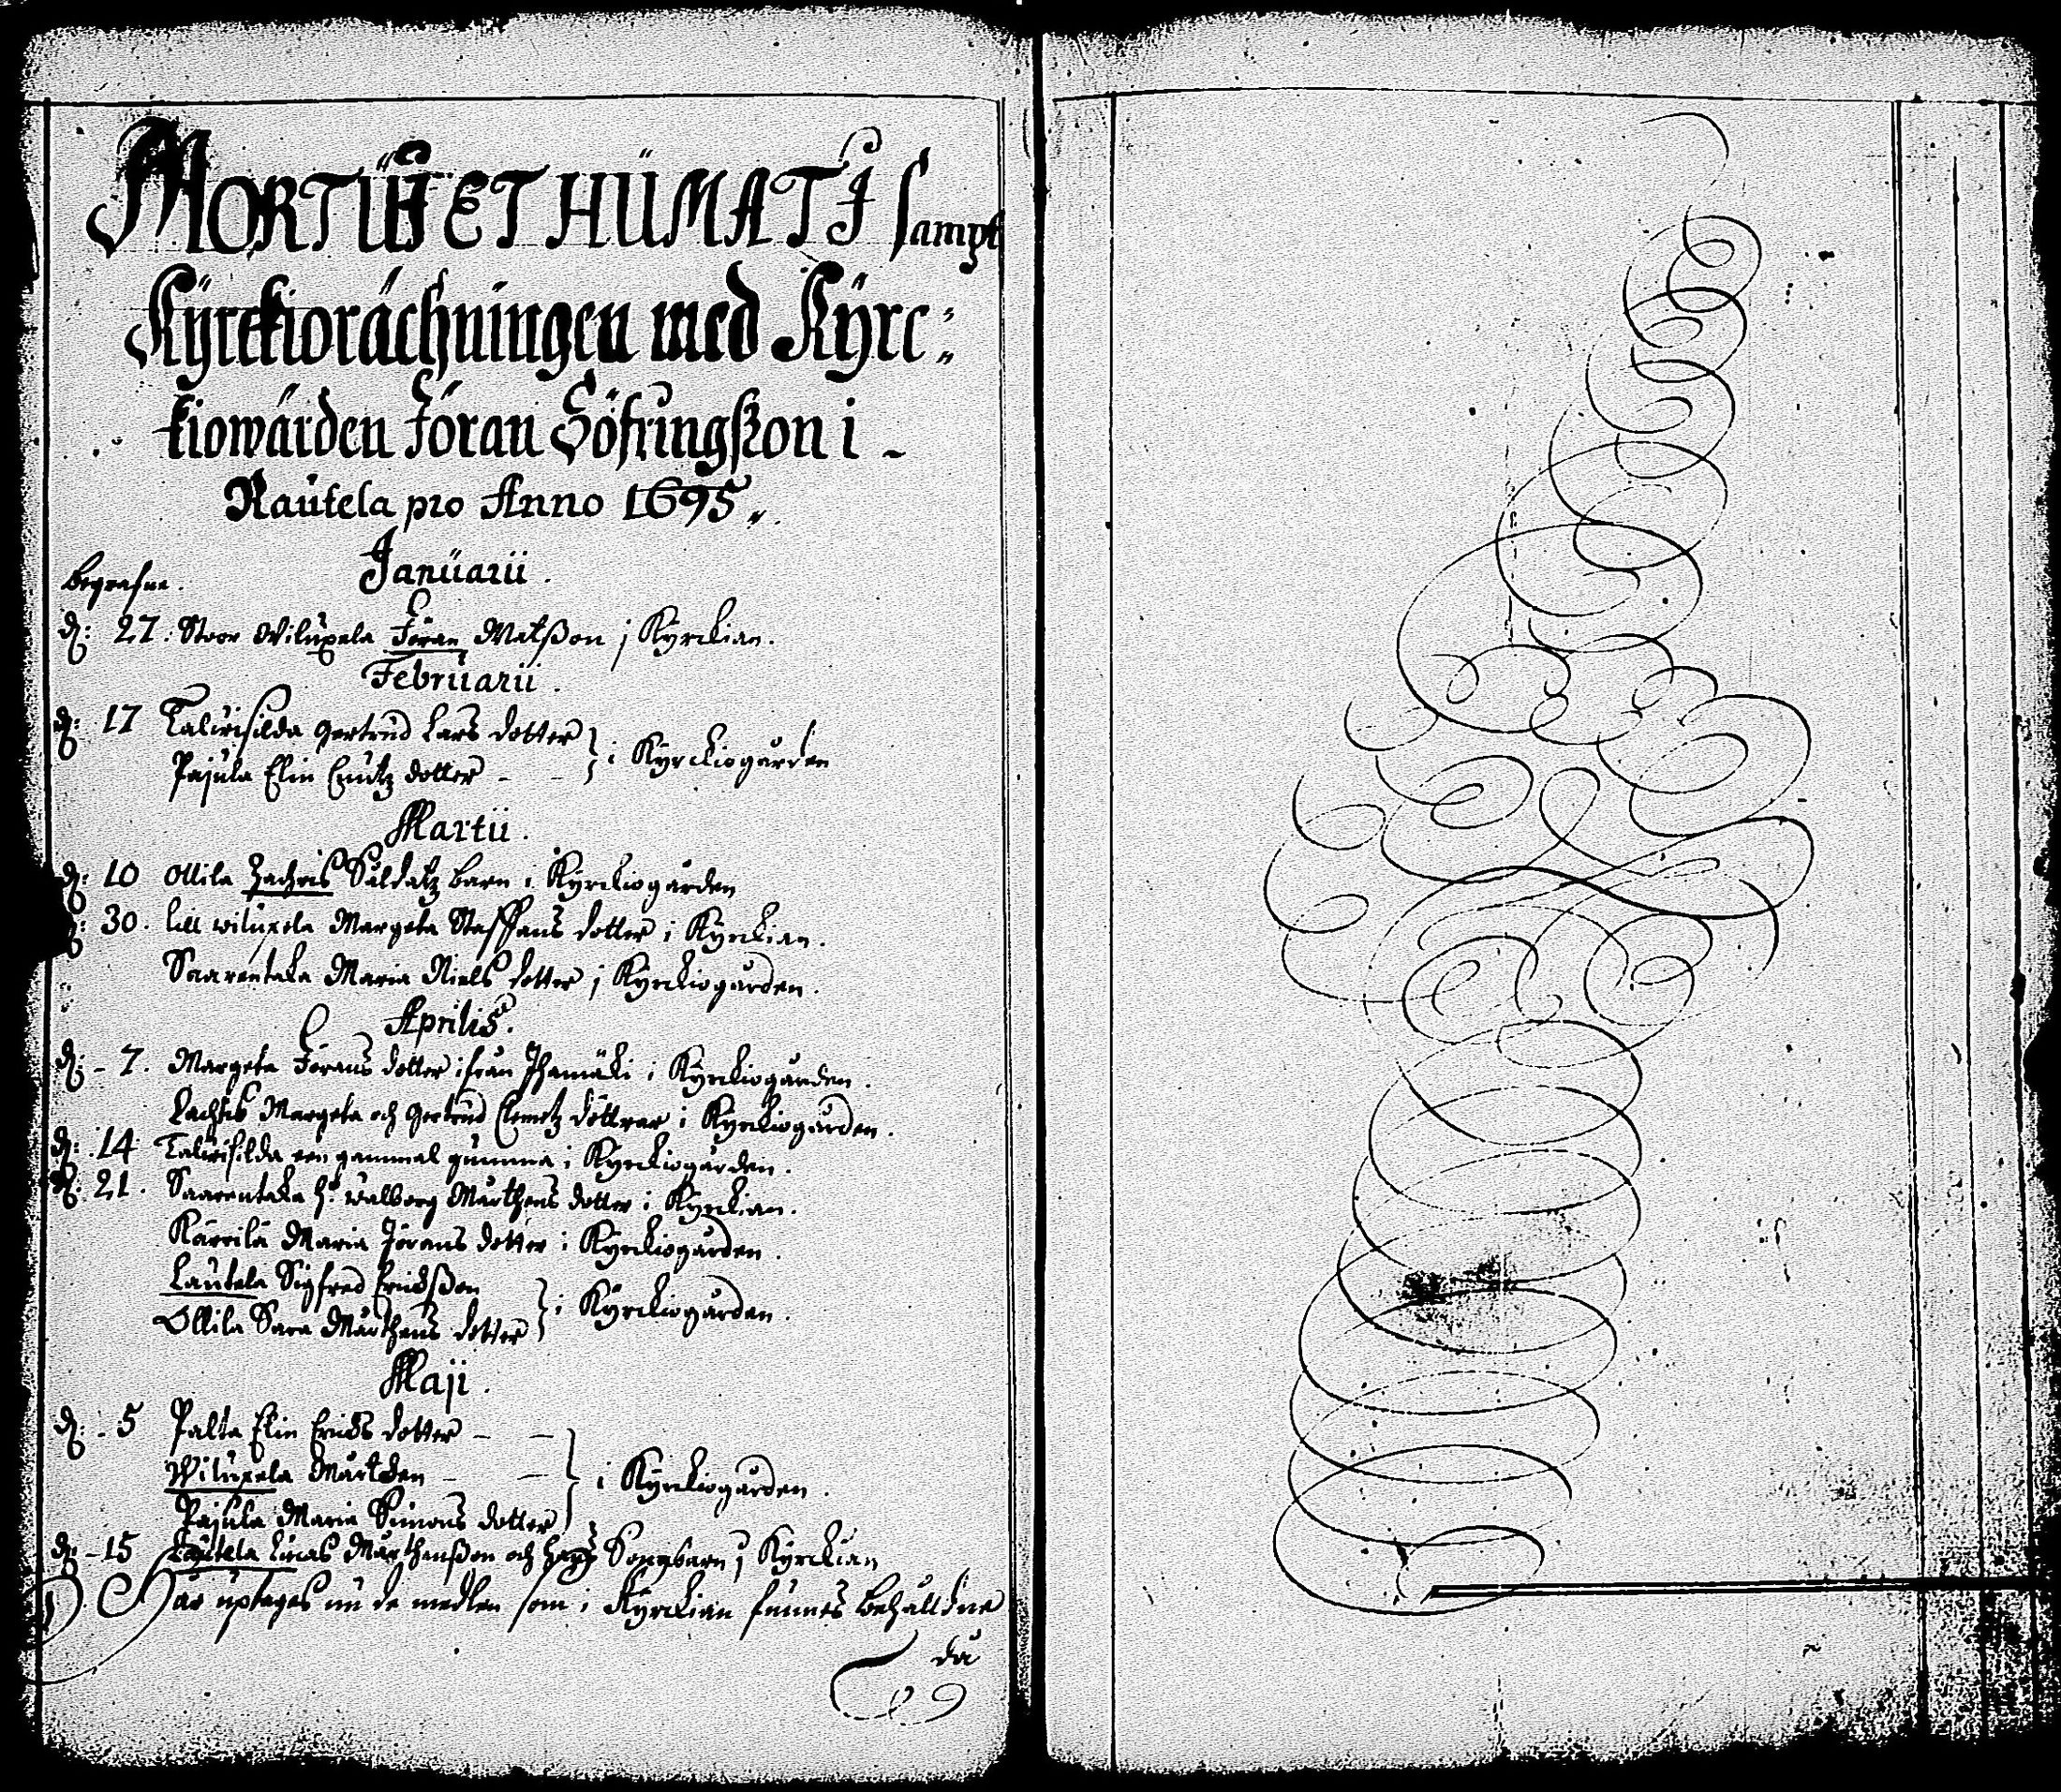 MORTÜI ET HÜMATI sampt
Kÿrckioräckningen med Kÿrc⸗
kiowärden Jöran Söfringßon i
Rautela pro Anno 1695.
Januarii.
Begrafne.
d: 27. Stoor Wiluxela Jöran Matßon j Kÿrckian.
Februarii.
d: 17 Talwisilda Gertrud Lars dotter
Pajula Elin Cnutz dotter - - } i Kÿrckiogården
Martii.
d: 10 Ollila Zachris Saldatz barn i Kÿrckiogården
d: 30. Lill wiluxela Margeta Staffans dotter i Kÿrckian.
Saarentaka Maria Niels dotter j Kÿrckiogården.
Aprilis.
d: - 7. Margeta Jörans dotter ifrån Ihamäki i Kÿrckiogården.
Lachtis Margeta och Gertrud Clemetz döttrar i Kÿrckiogården.
d: 14 Talwisilda een gammal gumma i Kÿrckiogården.
d: 21. Saarentaka h: walborg Mårthens dotter i Kÿrckian.
Kärrilä Maria Jörans dotter i Kÿrckiogården.
Lautela Sigfred Erichßon
Ollila Sara Mårthens dotter } i Kÿrckiogården.
Maji.
d: - 5 Palta Elin Erichs dotter - -
Wiluxela Mårthen - - } i Kÿrckiogården.
Pajula Maria Simons dotter
d: - 15 Lautela Lucas Mårthenßon och hans Sonabarn j Kÿrckian
Här uptages nu de medlen som i Kÿrckian funnes behålldne
då